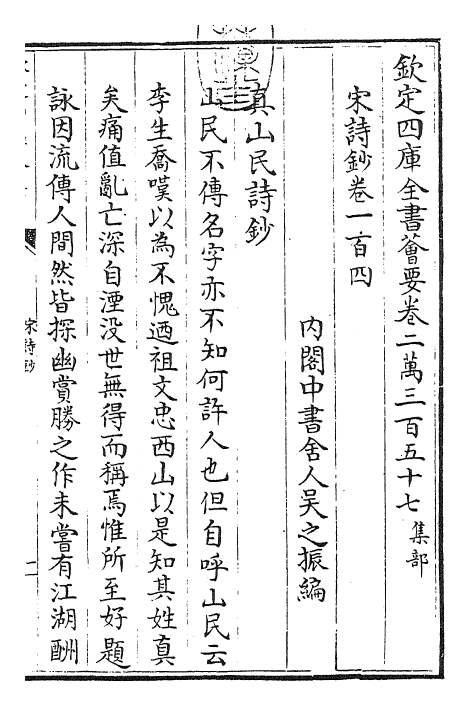 欽定四庫全書薈要卷二萬三百五十七 集部
宋詩鈔卷一百四
內閣中書舍人吳之振編
真山民詩鈔
山民不傳名字亦不知何許人也但自呼山民云
李生喬嘆以為不愧迺祖文忠西山以是知其姓真
矣痛值亂亡深自湮没世無得而稱焉惟所至好題
詠因流傳人間然皆探幽賞勝之作未嘗有江湖酬
宋詩鈔